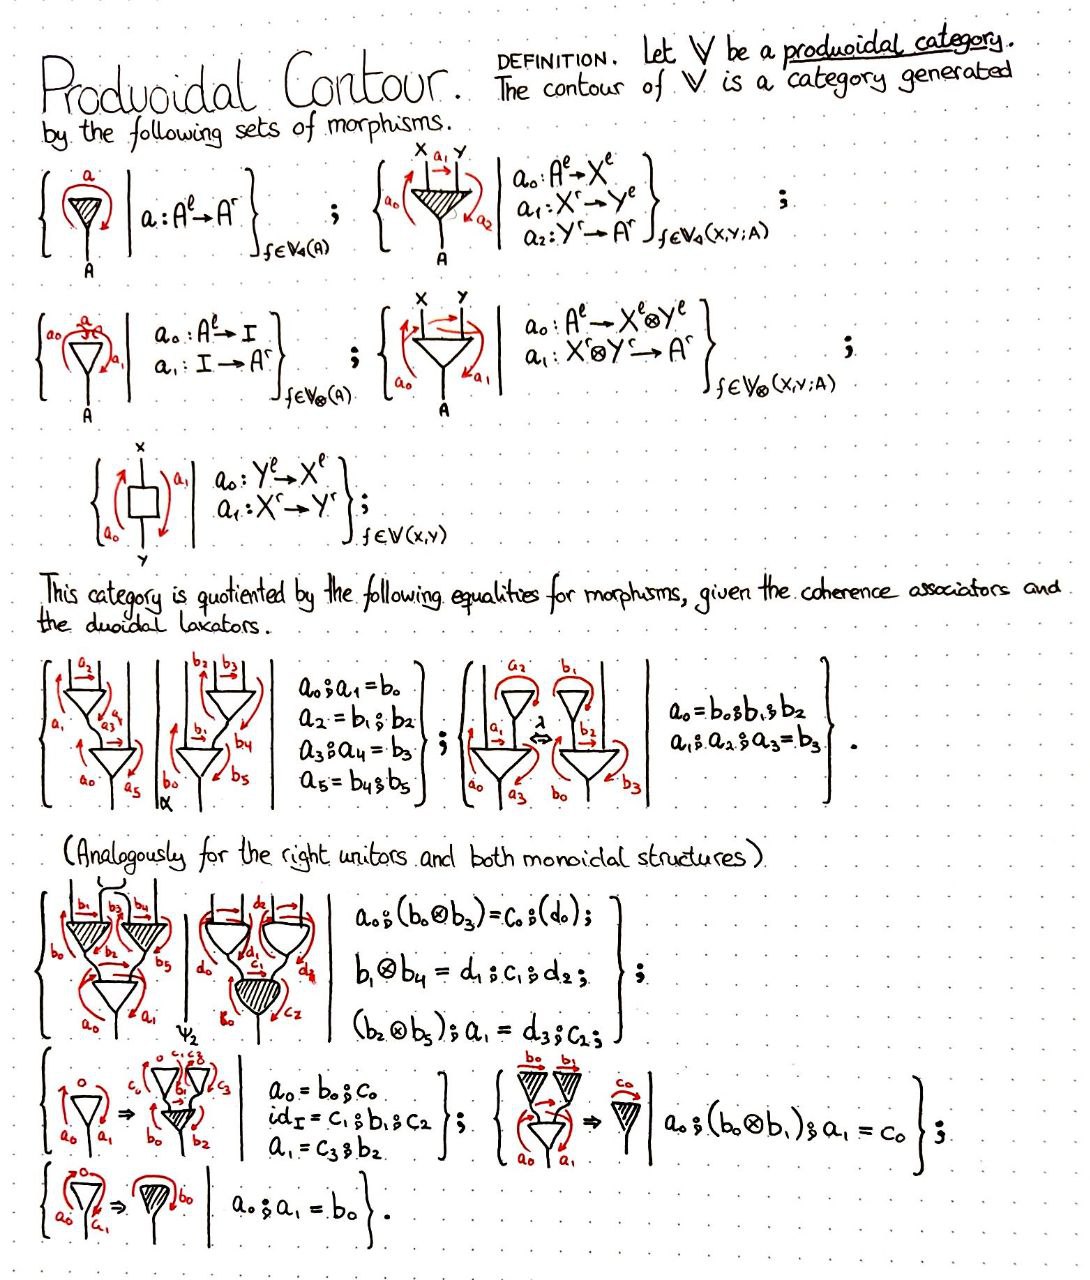 Produoidal Contour.
DEFINITION. Let 𝕍 be a produoidal category.
The contour of 𝕍 is a category generated
by the following sets of morphisms.
a
A
a : Aˡ→Aʳ
f∈𝕍◁(A)
;
X a₁ Y
a₀
a₂
A
a₀ : Aˡ→Xˡ
a₁ : Xʳ→Yˡ
a₂ : Yʳ→Aʳ
f∈𝕍◁(X,Y;A)
;
a₀
a₁
A
a₀ : Aˡ→I
a₁ : I→Aʳ
f∈𝕍⊗(A)
;
X Y
a₀
a₁
A
a₀ : Aˡ→Xˡ⊗Yˡ
a₁ : Xʳ⊗Yʳ→Aʳ
f∈𝕍⊗(X,Y;A)
;
X
a₁
a₀
Y
a₀ : Yˡ→Xˡ
a₁ : Xʳ→Yʳ
;
f∈𝕍(X,Y)
This category is quotiented by the following equalities for morphisms, given the coherence associators and
the duoidal laxators.
a₂
a₁ a₄
a₃
a₀ a₅
b₂ b₃
b₁
b₄
b₀ b₅
α
a₀⨟a₁=b₀
a₂=b₁⨟b₂
a₃⨟a₄=b₃
a₅=b₄⨟b₅
;
a₂ b₁
a₁ λ b₂
⇔
a₀ a₃ b₀ b₃
a₀=b₀⨟b₁⨟b₂
a₁⨟a₂⨟a₃=b₃
.
(Analogously for the right unitors and both monoidal structures)
b₁ b₃ b₄
b₀ b₂ b₅
a₀ a₁
ψ₂
d₂
d₀ d₁ c₁
c₂
a₀⨟(b₀⊗b₃)=c₀⨟(d₀);
b₁⊗b₄ = d₁⨟c₁⨟d₂;
(b₂⊗b₅)⨟a₁ = d₃⨟c₂;
;
a₀ a₁
⇒
c₀ c₁ c₂ c₃
b₁
b₀ b₂
a₀=b₀⨟c₀
id_I=c₁⨟b₁⨟c₂
a₁=c₃⨟b₂
;
b₀ b₁
a₀ a₁
⇒
c₀
a₀⨟(b₀⊗b₁)⨟a₁=c₀
;
a₀ a₁
⇒
b₀
a₀⨟a₁=b₀
.